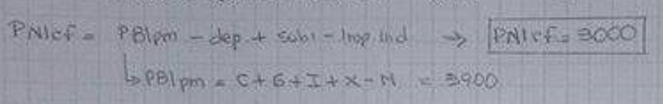 PNIcf = PBIpm - dep. + subs - Imp. ind → PNIcf = 3000
↳ PBIpm = C + G + I + X - M = 3900